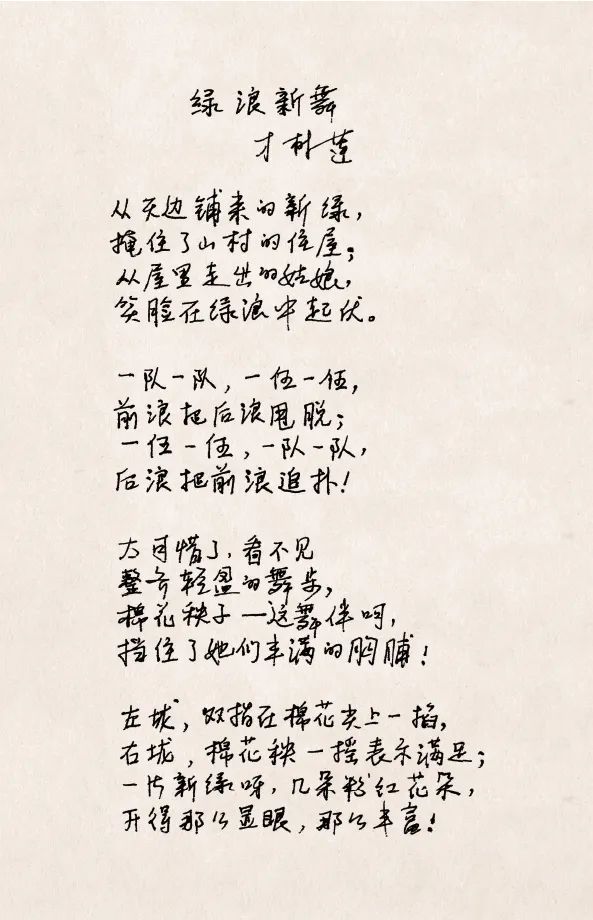 绿浪新舞
才树莲
从天边铺来的新绿，
掩住了山村的住屋；
从屋里走出的姑娘，
笑脸在绿浪中起伏。
一队一队，一伍一伍，
前浪把后浪甩脱；
一伍一伍，一队一队，
后浪把前浪追扑！
太可惜了，看不见
整齐轻盈的舞步，
棉花秧子—这舞伴呵，
挡住了她们丰满的胸脯！
左垅，双指在棉花尖上一掐，
右垅，棉花秧一摇表示满足；
一片新绿呀，几朵粉红花朵，
开得那么显眼，那么丰富！